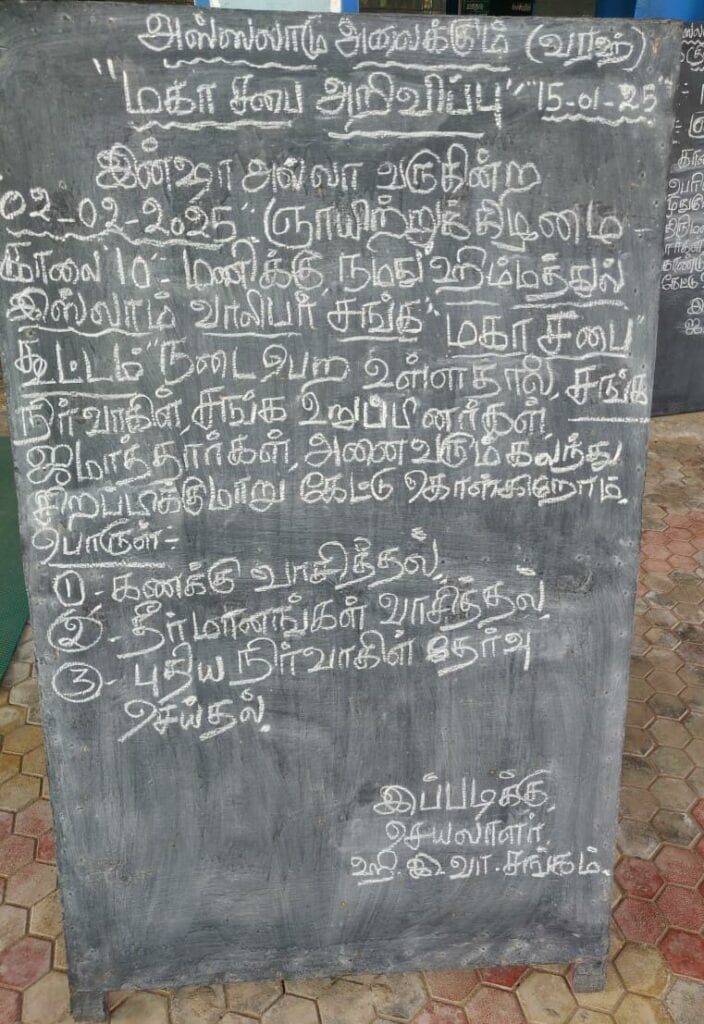 அஸ்ஸலாமு அலைக்கும் (வரஹ்)
"மகா சபை அறிவிப்பு" "15-01-25"
இன்ஷா அல்லா வருகின்ற
"02-02-2025" ஞாயிற்றுக்கிழமை
காலை "10"- மணிக்கு நமது ஹிம்மத்துல்
இஸ்லாம் வாலிபர் சங்க "மகா சபை"
கூட்டம்" நடைபெற உள்ளதால், சங்க
நிர்வாகிள், சங்க உறுப்பினர்கள்
ஜமாத்தார்கள், அனைவரும் கலந்து
சிறப்பிக்குமாறு கேட்டு கொள்கிறோம்.
பொருள்:-
1 - கணக்கு வாசித்தல்,
2 - தீர்மானங்கள் வாசித்தல்,
3 - புதிய நிர்வாகிள் தேர்வு
செய்தல்.
இப்படிக்கு,
செயலாளர்,
ஹி.இ.வா. சங்கம்.